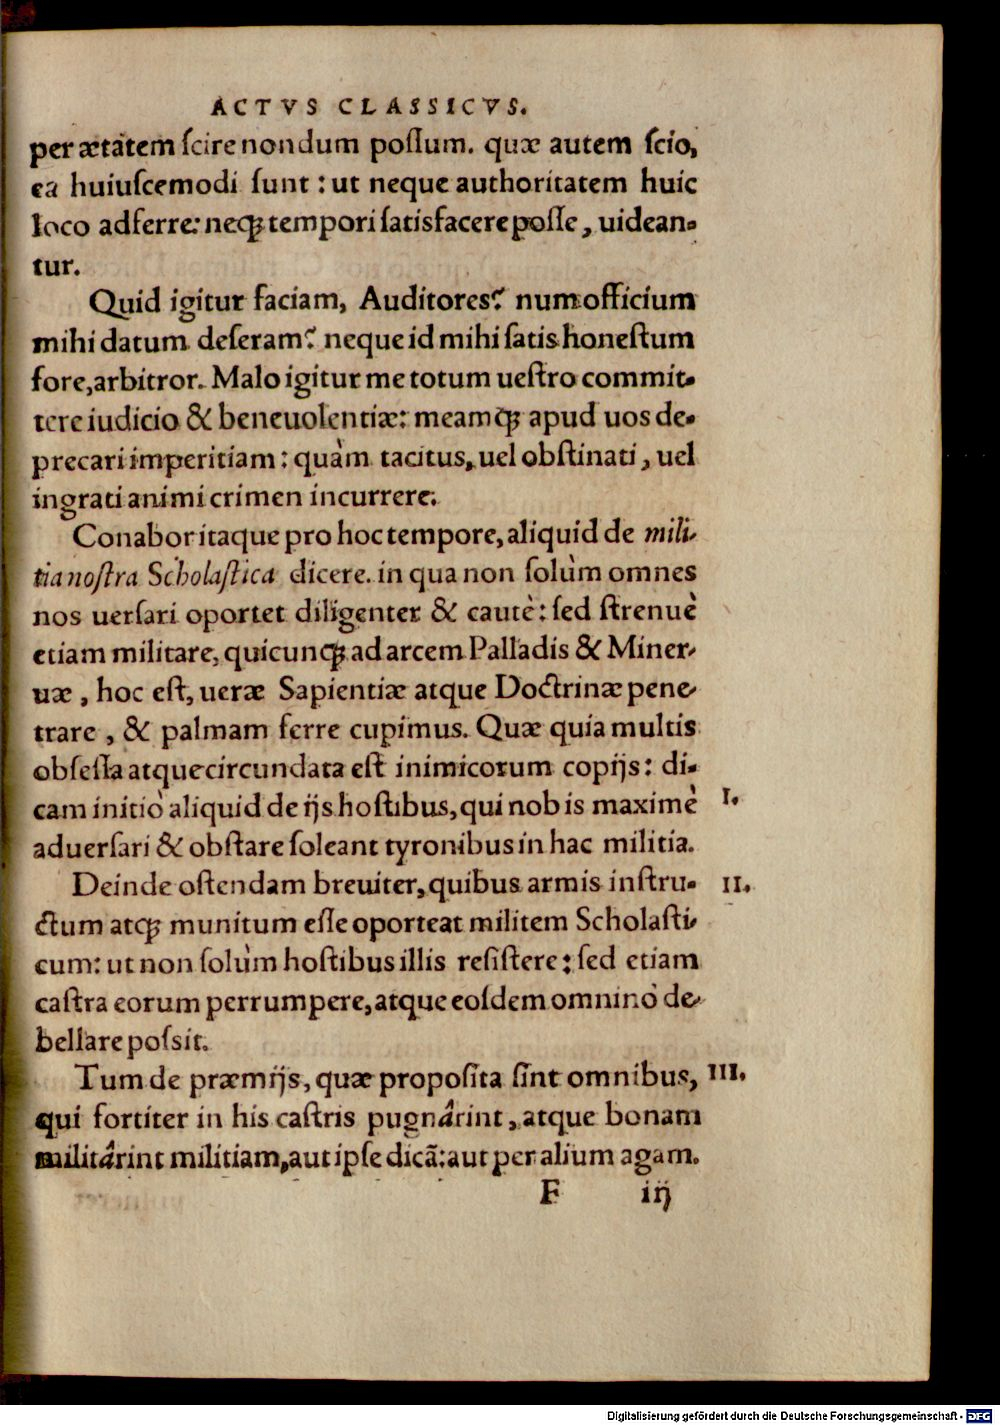 ACTVS CLASSICVS.
per ætatem ſcire nondum poſſum. quæ autem ſcio,
ea huiuſcemodi ſunt : ut neque authoritatem huic
loco adferre: neqꝫ tempori ſatisfacere poſſe, uidean-
tur.
Quid igitur faciam, Auditores? num officium
mihi datum deſeram? neque id mihi ſatis honeſtum
fore, arbitror. Malo igitur me totum ueſtro commit-
tere iudicio & beneuolentiæ: meamqꝫ apud uos de-
precari imperitiam : quàm tacitus, uel obſtinati, uel
ingrati animi crimen incurrere.
Conabor itaque pro hoc tempore, aliquid de mili-
tia noſtra Scholaſtica dicere. in qua non ſolùm omnes
nos uerſari oportet diligenter & cautè : ſed ſtrenuè
etiam militare, quicunqꝫ ad arcem Palladis & Miner-
uæ, hoc eſt, ueræ Sapientiæ atque Doctrinæ pene-
trare, & palmam ferre cupimus. Quæ quia multis
obſeſſa atque circundata eſt inimicorum copijs : di-
cam initiò aliquid de ijs hoſtibus, qui nobis maximè I.
aduerſari & obſtare ſoleant tyronibus in hac militia.
Deinde oſtendam breuiter, quibus armis inſtru- II.
ctum atqꝫ munitum eſſe oporteat militem Scholaſti-
cum: ut non ſolùm hoſtibus illis reſiſtere : ſed etiam
caſtra eorum perrumpere, atque eoſdem omninò de-
bellare poſsit.
Tum de præmijs, quæ propoſita ſint omnibus, III.
qui fortiter in his caſtris pugnârint, atque bonam
militârint militiam, aut ipſe dicã: aut per alium agam.
F iij
Digitalisierung gefördert durch die Deutsche Forschungsgemeinschaft - DFG